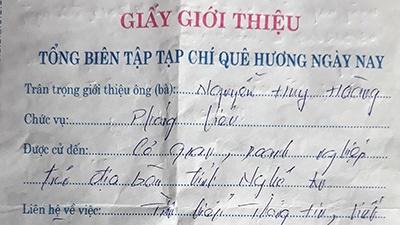 GIẤY GIỚI THIỆU
TỔNG BIÊN TẬP TẠP CHÍ QUÊ HƯƠNG NGÀY NAY
Trân trọng giới thiệu ông (bà): Nguyễn Huy Hoàng
Chức vụ: Phóng viên
Được cử đến: Cơ quan, doanh nghiệp
trên địa bàn tỉnh Nghệ An
Liên hệ về việc: Tìm hiểu thông tin, viết